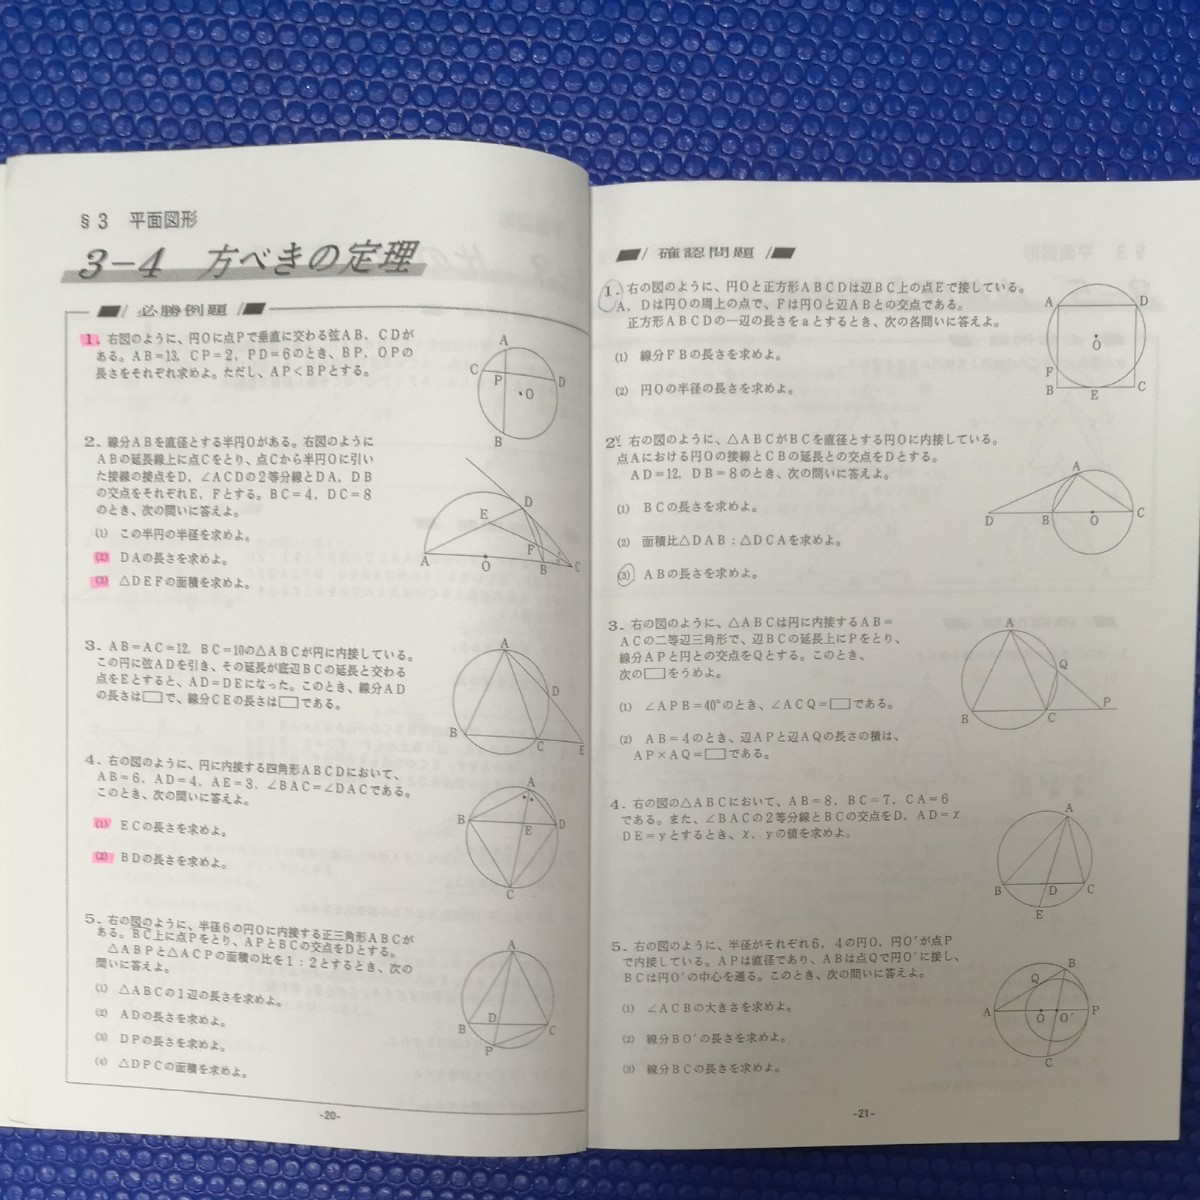 §3 平面図形
3-4 方べきの定理
必勝例題
1. 右図のように、円Oに点Pで垂直に交わる弦AB, CDが
ある。AB=13, CP=2, PD=6のとき、BP, OPの
長さをそれぞれ求めよ。ただし、AP<BPとする。
A
C
P
D
O
B
2. 線分ABを直径とする半円Oがある。右図のように
ABの延長線上に点Cをとり、点Cから半円Oに引い
た接線の接点をD, ∠ACDの2等分線とDA, DB
の交点をそれぞれE, Fとする。BC=4, DC=8
のとき、次の問いに答えよ。
(1) この半円の半径を求めよ。
(2) DAの長さを求めよ。
(3) △DEFの面積を求めよ。
D
E
F
A
O
B
C
3. AB=AC=12, BC=10の△ABCが円に内接している。
この円に弦ADを引き、その延長が底辺BCの延長と交わる
点をEとすると、AD=DEになった。このとき、線分AD
の長さは□で、線分CEの長さは□である。
A
D
B
C
E
4. 右の図のように、円に内接する四角形ABCDにおいて、
AB=6, AD=4, AE=3, ∠BAC=∠DACである。
このとき、次の問いに答えよ。
(1) ECの長さを求めよ。
(2) BDの長さを求めよ。
A
B
E
D
C
5. 右の図のように、半径6の円Oに内接する正三角形ABCが
ある。BC上に点Pをとり、APとBCの交点をDとする。
△ABPと△ACPの面積の比を1:2とするとき、次の
問いに答えよ。
(1) △ABCの1辺の長さを求めよ。
(2) ADの長さを求めよ。
(3) DPの長さを求めよ。
(4) △DPCの面積を求めよ。
A
B
D
C
P
-20-
確認問題
1. 右の図のように、円Oと正方形ABCDは辺BC上の点Eで接している。
A, Dは円Oの周上の点で、Fは円Oと辺ABとの交点である。
正方形ABCDの一辺の長さをaとするとき、次の各問いに答えよ。
(1) 線分FBの長さを求めよ。
(2) 円Oの半径の長さを求めよ。
A
D
O
F
B
E
C
2. 右の図のように、△ABCがBCを直径とする円Oに内接している。
点Aにおける円Oの接線とCBの延長との交点をDとする。
AD=12, DB=8のとき、次の問いに答えよ。
(1) BCの長さを求めよ。
(2) 面積比△DAB:△DCAを求めよ。
(3) ABの長さを求めよ。
A
D
B
O
C
3. 右の図のように、△ABCは円に内接するAB=
ACの二等辺三角形で、辺BCの延長上にPをとり、
線分APと円との交点をQとする。このとき、
次の□をうめよ。
(1) ∠APB=40°のとき、∠ACQ=□である。
(2) AB=4のとき、辺APと辺AQの長さの積は、
AP×AQ=□である。
A
Q
P
B
C
4. 右の図の△ABCにおいて、AB=8, BC=7, CA=6
である。また、∠BACの2等分線とBCの交点をD, AD=x
DE=yとするとき、x, yの値を求めよ。
A
B
D
C
E
5. 右の図のように、半径がそれぞれ6, 4の円O, 円O'が点P
で内接している。APは直径であり、ABは点Qで円O'に接し、
BCは円O'の中心を通る。このとき、次の問いに答えよ。
(1) ∠ACBの大きさを求めよ。
(2) 線分BO'の長さを求めよ。
(3) 線分BCの長さを求めよ。
B
Q
A
O
O'
P
C
-21-